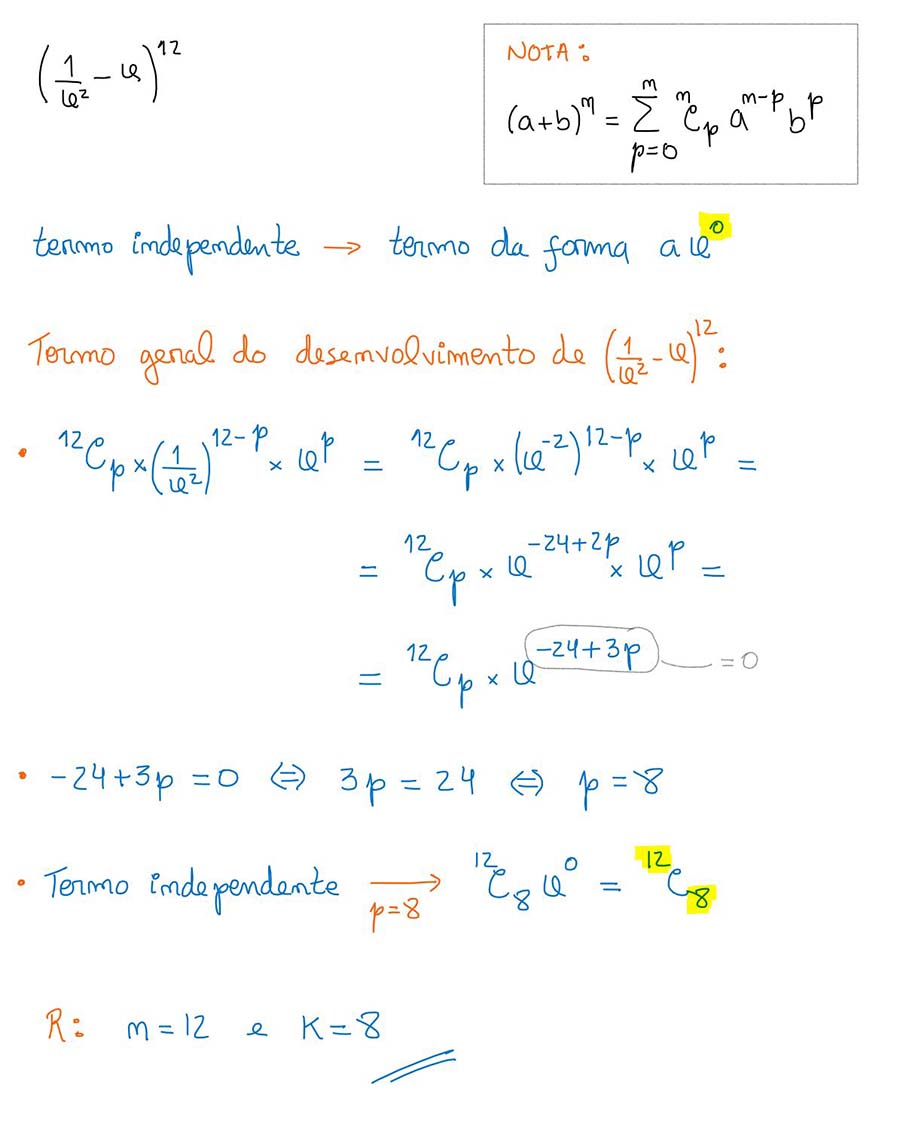 (1/x² − x)¹²
NOTA:
(a+b)ⁿ = Σ_{p=0}^{n} ⁿCₚ aⁿ⁻ᵖ bᵖ
termo independente → termo da forma a x⁰
Termo geral do desenvolvimento de (1/x² − x)¹²:
• ¹²Cₚ × (1/x²)¹²⁻ᵖ × xᵖ = ¹²Cₚ × (x⁻²)¹²⁻ᵖ × xᵖ =
= ¹²Cₚ × x⁻²⁴⁺²ᵖ × xᵖ =
= ¹²Cₚ × x⁻²⁴⁺³ᵖ = 0
• −24+3p = 0 ⇔ 3p = 24 ⇔ p = 8
• Termo independente → p=8 ¹²C₈ x⁰ = ¹²C₈
R: n = 12 e K = 8